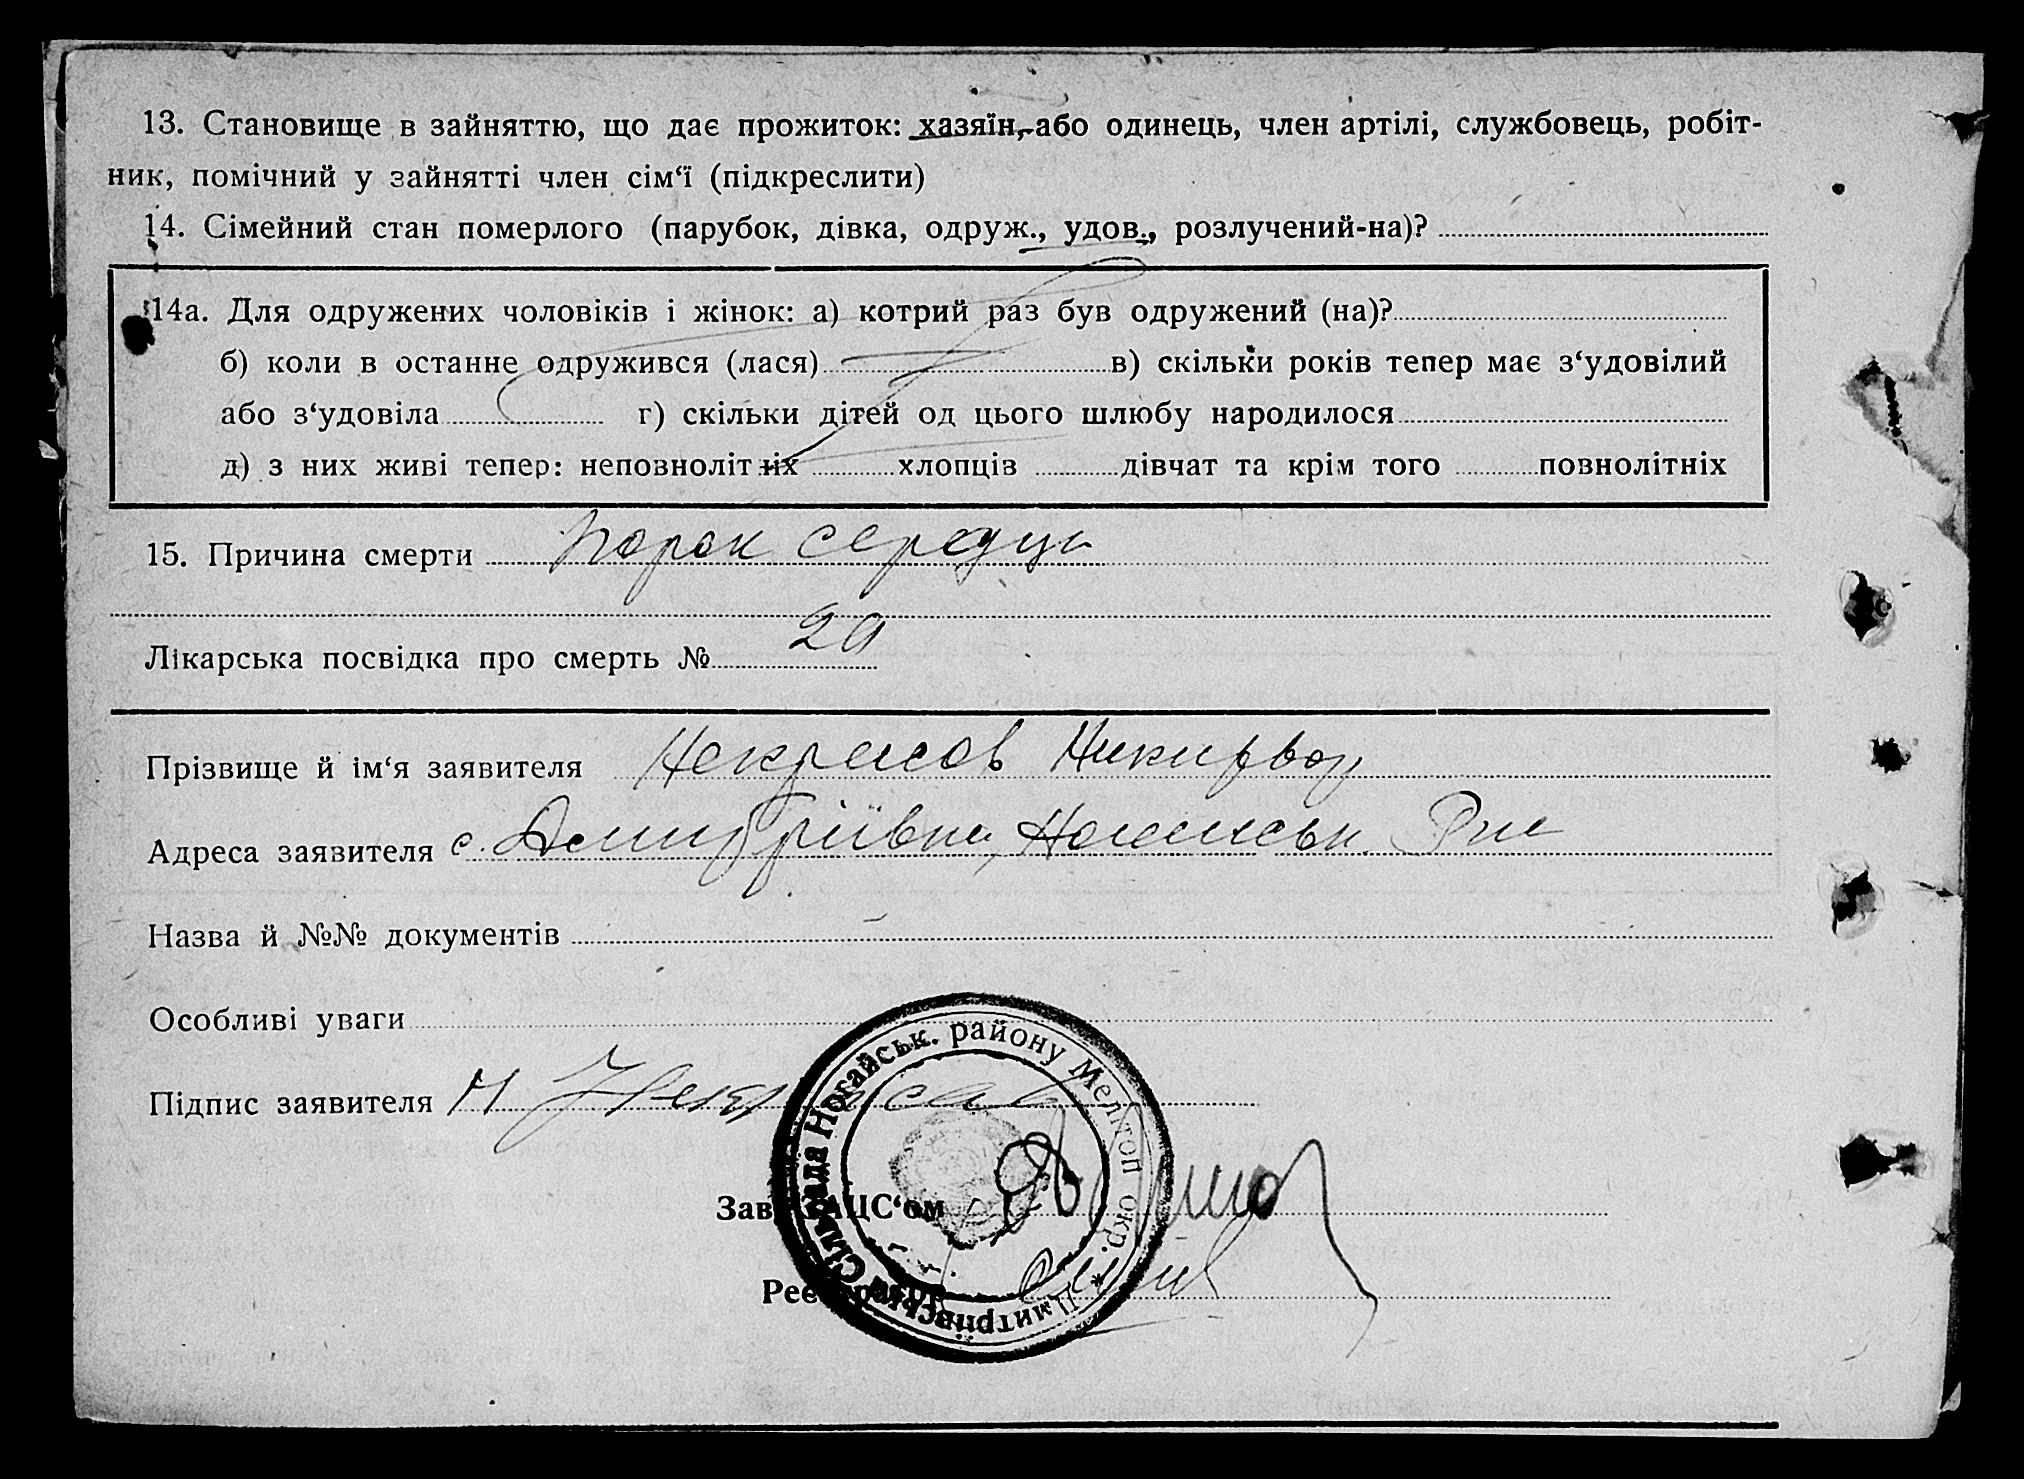 13. Становище в зайняттю, що дає прожиток: хазяїн, або одинець, член артілі, службовець, робіт-
ник, помічний у зайнятті член сім‘ї (підкреслити)
14. Сімейний стан померлого (парубок, дівка, одруж., удов., розлучений-на)?
14а. Для одружених чоловіків і жінок: а) котрий раз був одружений (на)?
б) коли в останнє одружився (лася) в) скільки років тепер має з‘удовілий
або з‘удовіла г) скільки дітей од цього шлюбу народилося
д) з них живі тепер: неповнолітніх хлопців дівчат та крім того повнолітніх
15. Причина смерти порок середци
Лікарська посвідка про смерть № 29
Прізвище й ім‘я заявителя Некрасов
Адреса заявителя с. Дмитріївка,
Назва й №№ документів
Особливі уваги
Підпис заявителя Н Некрасов
Зав. ЗАЦС‘ом
Реєстратор
Дмитрівська Сільрада Ногайськ. району Мелітоп окр. *